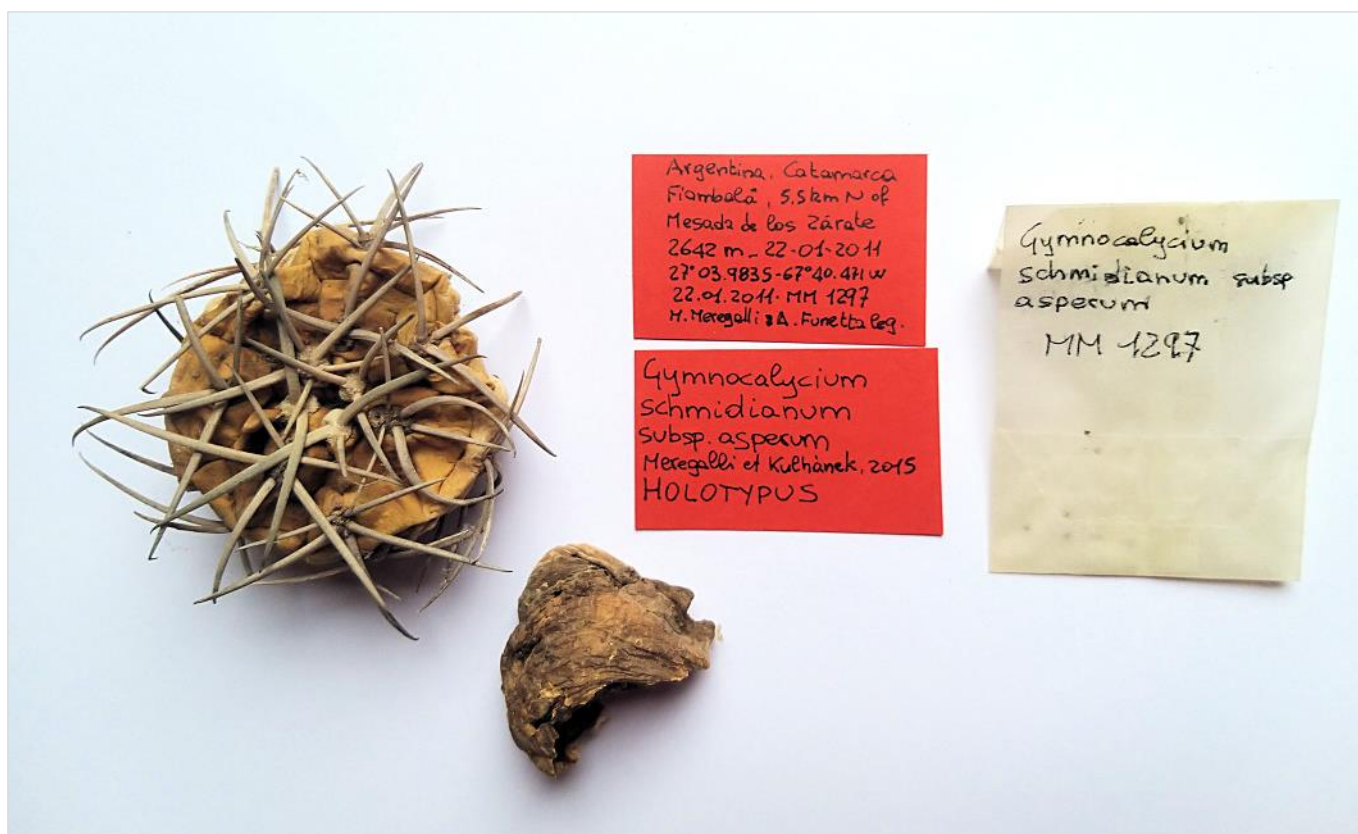 Argentina, Catamarca
Fiambalà, 5,5 km N of
Mesada de los Zárate
2642 m_ 22-01-2011
27°03.983S-67°40.471W
22.01.2011- MM 1297
M. Meregalli & A. Funetta leg.
Gymnocalycium
schmidianum
subsp. asperum
Meregalli et Kulhànek, 2015
HOLOTYPUS
Gymnocalycium
schmidianum subsp
asperum
MM 1297